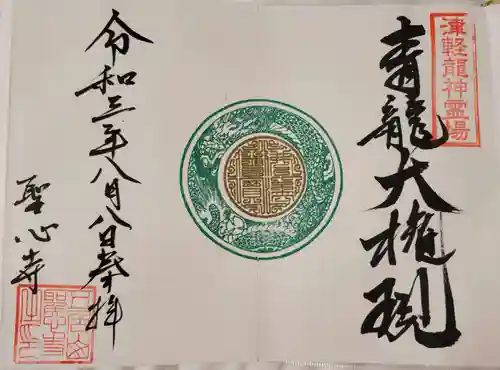 津軽龍神霊場
青龍大権現
令和三年八月八日奉拝
聖心寺